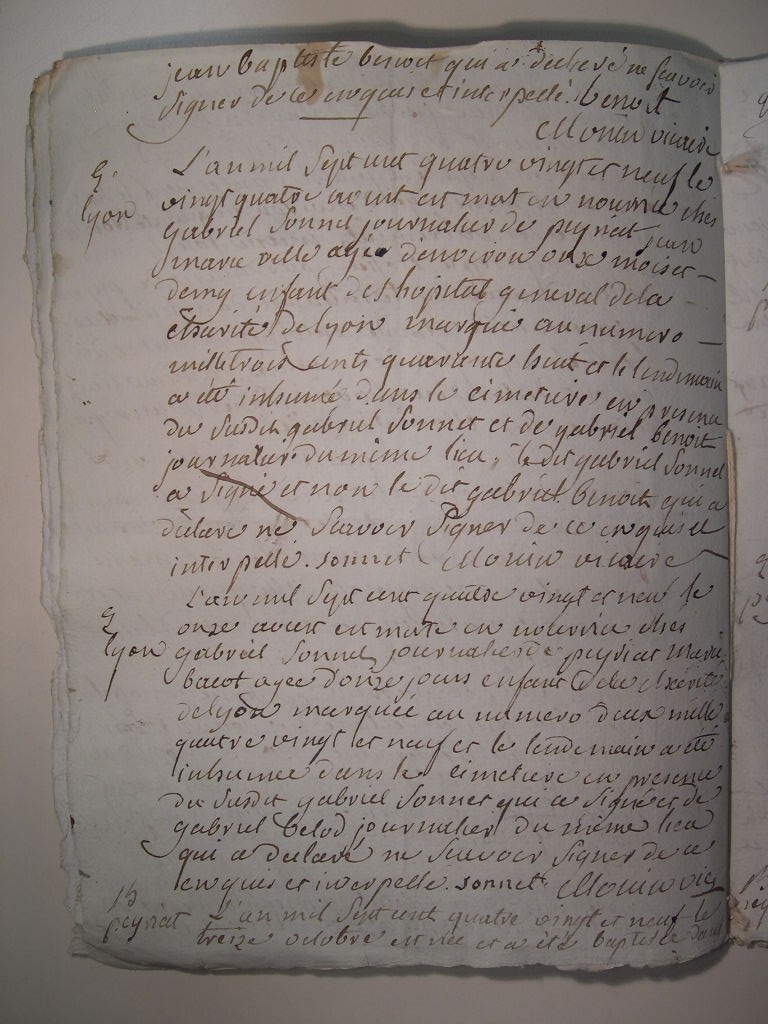 jean baptiste benoit qui a declaré ne scavoir
signer de ce enquis et interpellé. benoit
Monin vicaire
L'an mil sept cent quatre vingt et neuf le
vingt quatre aout est mort en nourrice ches
lyon
gabriel sonnet journalier de peyriat jean
marie ville agée d'environ onze mois et
demy enfant de l'hopital general de la
charité de lyon marqué au numero
mille trois cents quarante huit et le lendemain
a été inhumé dans le cimetiere en presence
du susdit gabriel sonnet et de gabriel benoit
journalier du même lieu, le dit gabriel sonnet
a signé et non le dit gabriel benoit qui a
declaré ne scavoir signer de ce enquis et
interpellé. sonnet Monin vicaire
L'an mil sept cent quatre vingt et neuf le
onze aout est morte en nourrice ches
lyon
gabriel sonnet journalier de peyriat marie
agée d'onze jours enfant de la charité
de lyon marquée au numero deux mille
quatre vingt et neuf et le lendemain a été
inhumée dans le cimetiere en presence
du susdit gabriel sonnet qui a signé et de
gabriel belod journalier du même lieu
qui a declaré ne scavoir signer de ce
enquis et interpellé. sonnet Monin vic
15
peyriat
L'an mil sept cent quatre vingt et neuf le
treize octobre est née et a été baptisée dans